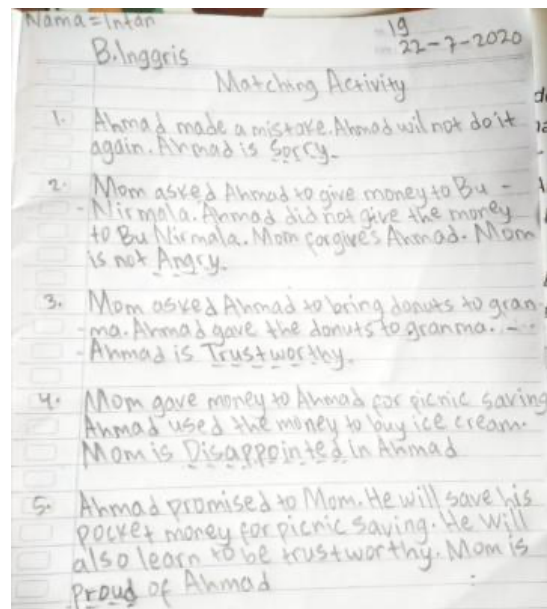 Nama = Intan
19
22-7-2020
B. Inggris
Matching Activity
1. Ahmad made a mistake. Ahmad wil not do it
again. Ahmad is Sorry.
2. Mom asked Ahmad to give money to Bu -
- Nirmala. Ahmad did not give the money
to Bu Nirmala. Mom forgives Ahmad. Mom
is not Angry.
3. Mom asked Ahmad to bring donuts to gran-
-ma. Ahmad gave the donuts to granma. - -
- Ahmad is Trustworthy.
4. Mom gave money to Ahmad for picnic saving
Ahmad used the money to buy ice cream.
Mom is Disappointed in Ahmad
5. Ahmad promised to Mom. He will save his
pocket money for picnic saving. He will
also learn to be trustworthy. Mom is
Proud of Ahmad